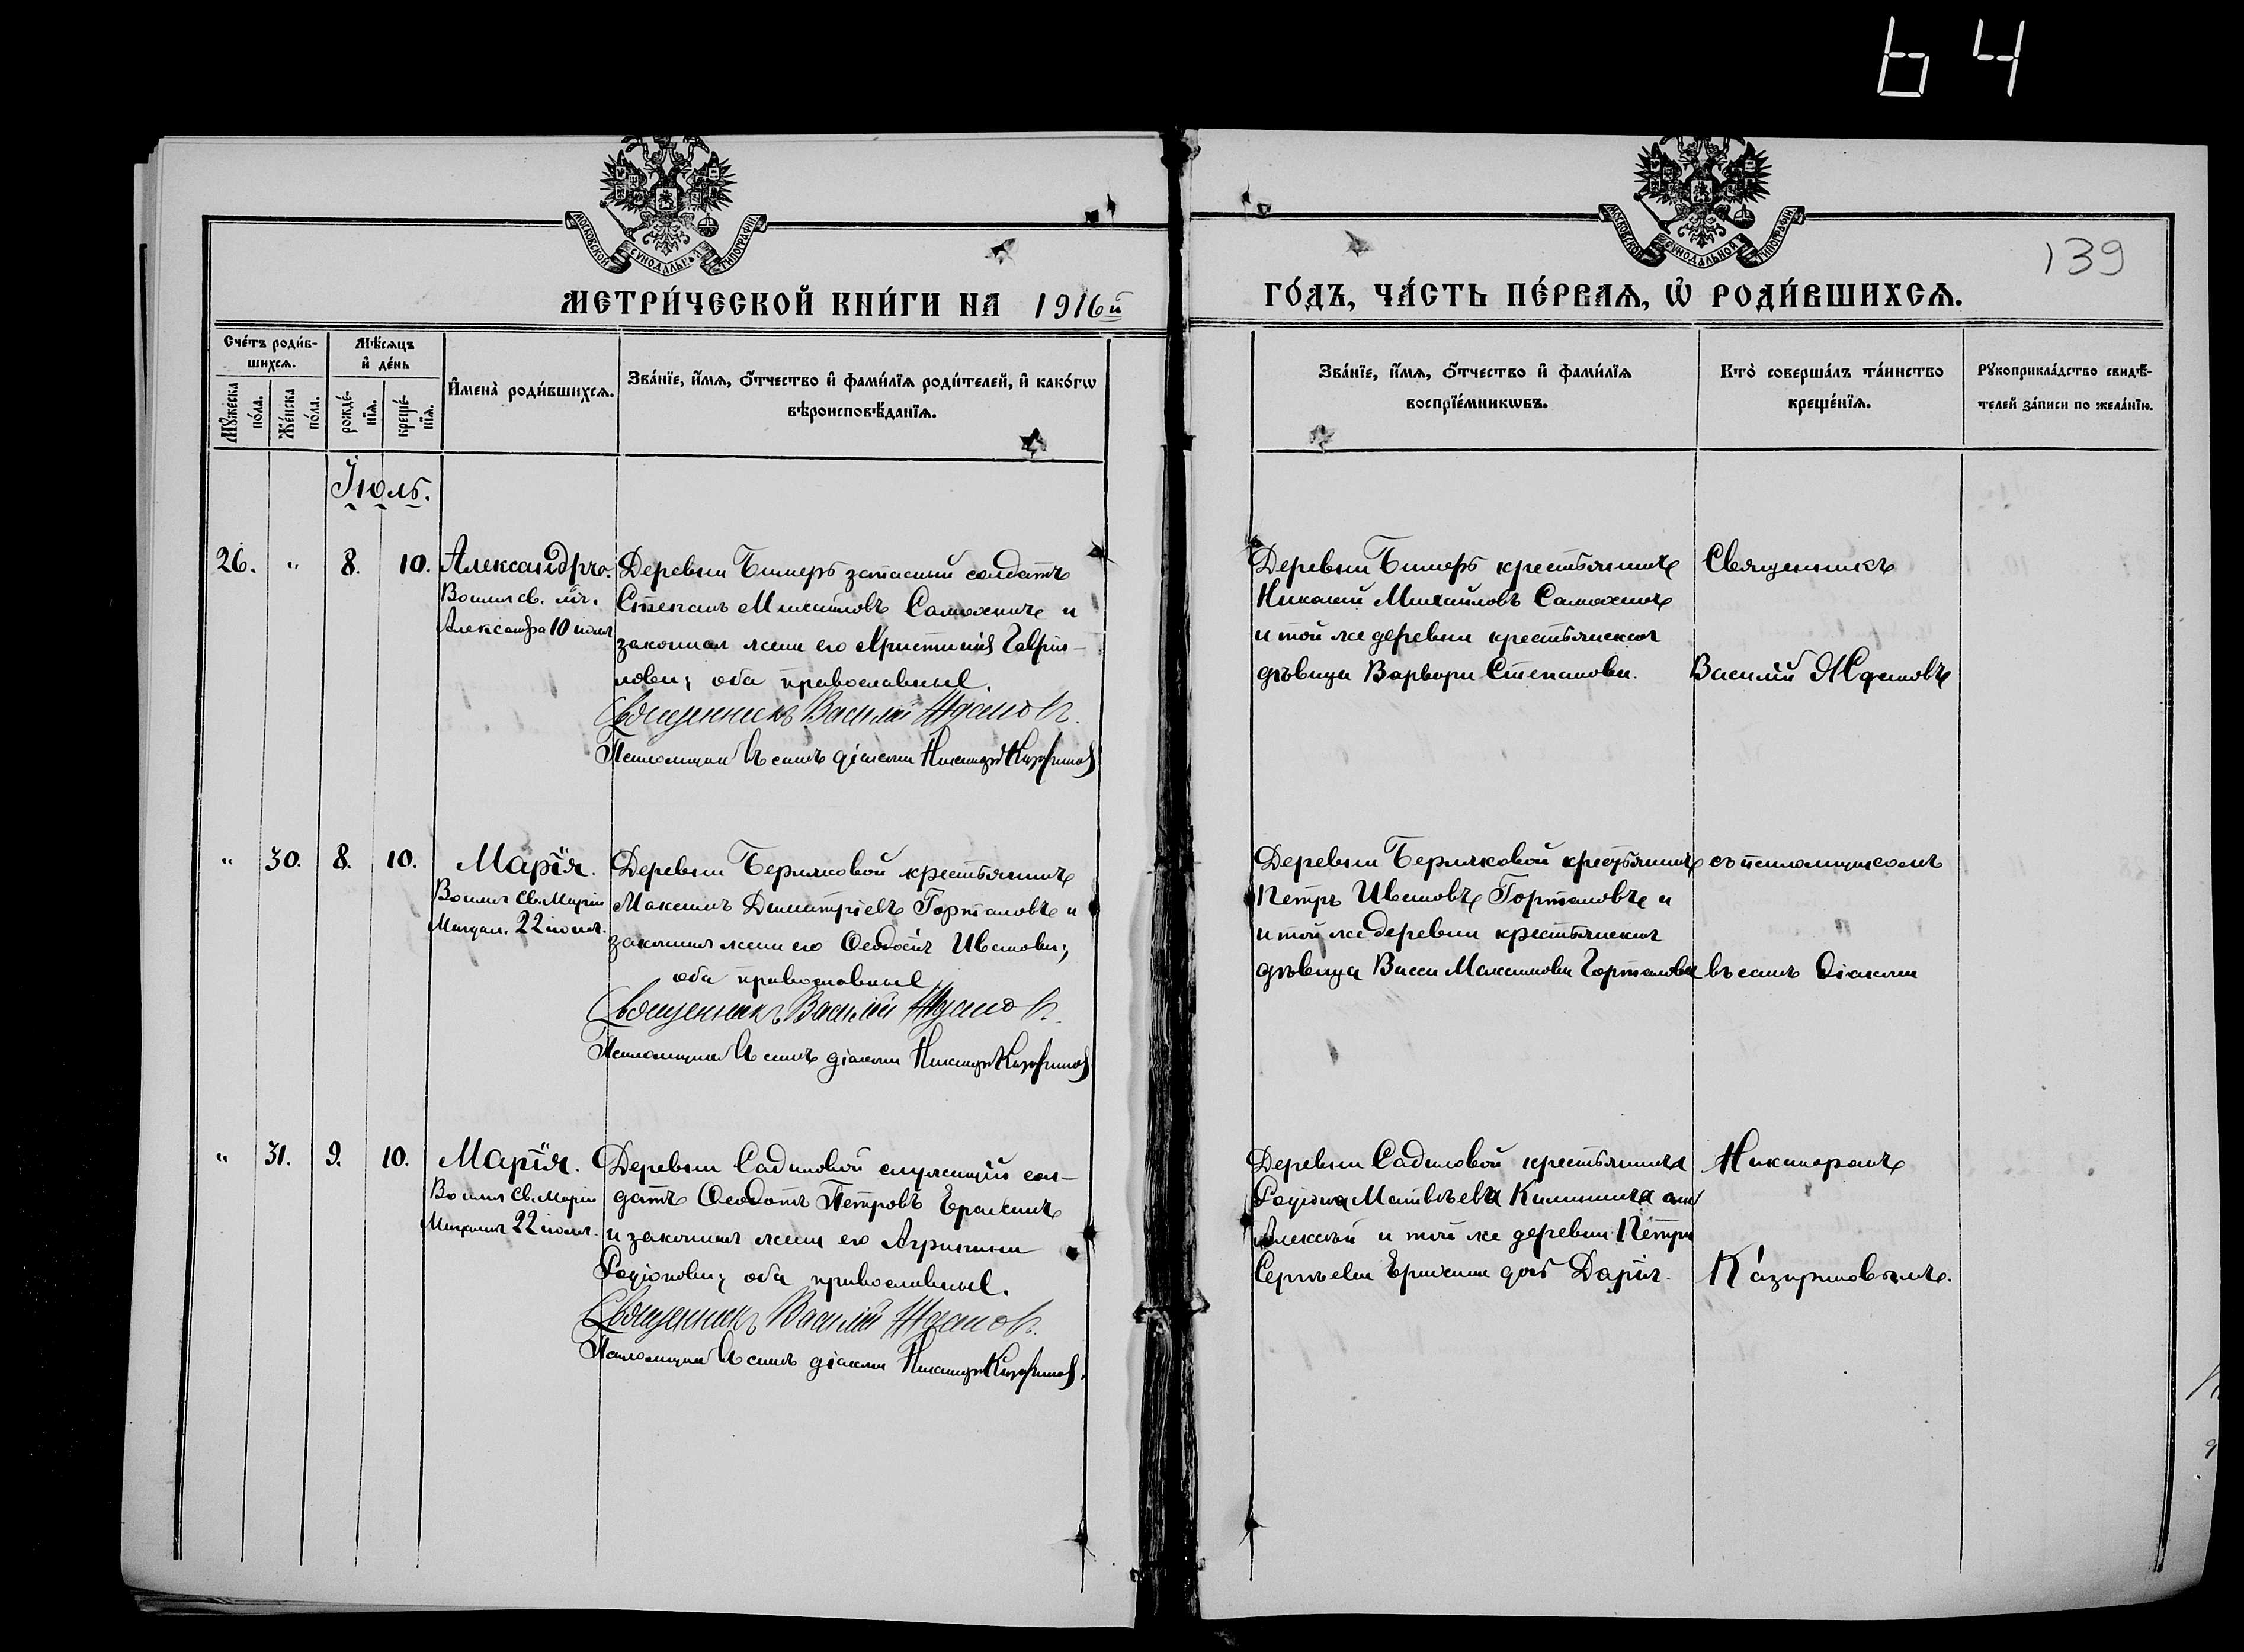 64
МОСКОВСКОЙ СѴНОДАЛЬНОЙ ТИПОГРАФІИ
МОСКОВСКОЙ СѴНОДАЛЬНОЙ ТИПОГРАФІИ
139
МЕТРИ́ЧЕСКОЙ КНИ́ГИ НА 1916й
ГО́ДЪ, ЧА́СТЬ ПЕ́РВАѦ, Ѡ҆ РОДИ́ВШИХСѦ.
Сче́тъ роди́в-
шихсѧ.
Мꙋ́жеска по́ла.
Же́нска по́ла.
Мѣ́сѧцъ
и҆ де́нь
рожде́-
нїѧ.
креще́-
нїѧ.
И҆мена̀ роди́вшихсѧ.
Зва́нїе, и҆́мѧ, ѻ҆́тчество и҆ фами́лїѧ роди́телей, и҆ како́гѡ
вѣроисповѣ́данїѧ.
Зва́нїе, и҆́мѧ, ѻ҆́тчество и҆ фами́лїѧ
воспрїе́мникѡвъ.
Кто̀ соверша́лъ та́инство
креще́нїѧ.
Рꙋкоприкла́дство свидѣ́-
телей за́писи по жела́нїю.
Іюль.
26. " 8. 10. Александръ.
Во имя св. мч.
Александра 10 іюля
Деревни Бимерь запасный солдатъ
Степанъ Михайловъ Самохинъ и
законная жена его Христинія Гаврі-
лова; оба православные.
Священникъ Василій Ждановъ.
Псаломщикъ въ санѣ діакона Никаноръ Казариновъ
Деревни Бимерь крестьянинъ
Николай Михайловъ Самохинъ
и той же деревни крестьянская
дѣвица Варвара Степанова.
Священникъ
Василій Ждановъ
" 30. 8. 10. Марія.
Во имя св. Маріи
Магдал. 22 іюля.
Деревни Берляковой крестьянинъ
Максимъ Димитріевъ Гортановъ и
законная жена его Ѳеодосія Иванова;
оба православные.
Священникъ Василій Ждановъ.
Псаломщикъ въ санѣ діакона Никаноръ Казариновъ
Деревни Берляковой крестьянинъ
Петръ Ивановъ Гортановъ и
и той же деревни крестьянская
дѣвица Васса Максимова Гортанова
съ псаломщикомъ
въ санѣ діакона
" 31. 9. 10. Марія.
Во имя св. Маріи
Магдалин. 22 іюля.
Деревни Садиловой служащій сол-
датъ Ѳеодотъ Петровъ Ерахинъ
и законная жена его Агрипина
Родіонова; оба православные.
Священникъ Василій Ждановъ.
Псаломщикъ въ санѣ діакона Никаноръ Казариновъ.
Деревни Садиловой крестьянина
Родіона Матвѣева Калинина сынъ
Алексѣй и той же деревни Петра
Сергѣева Ерахина дочь Дарія.
Никаноромъ
Казариновымъ.